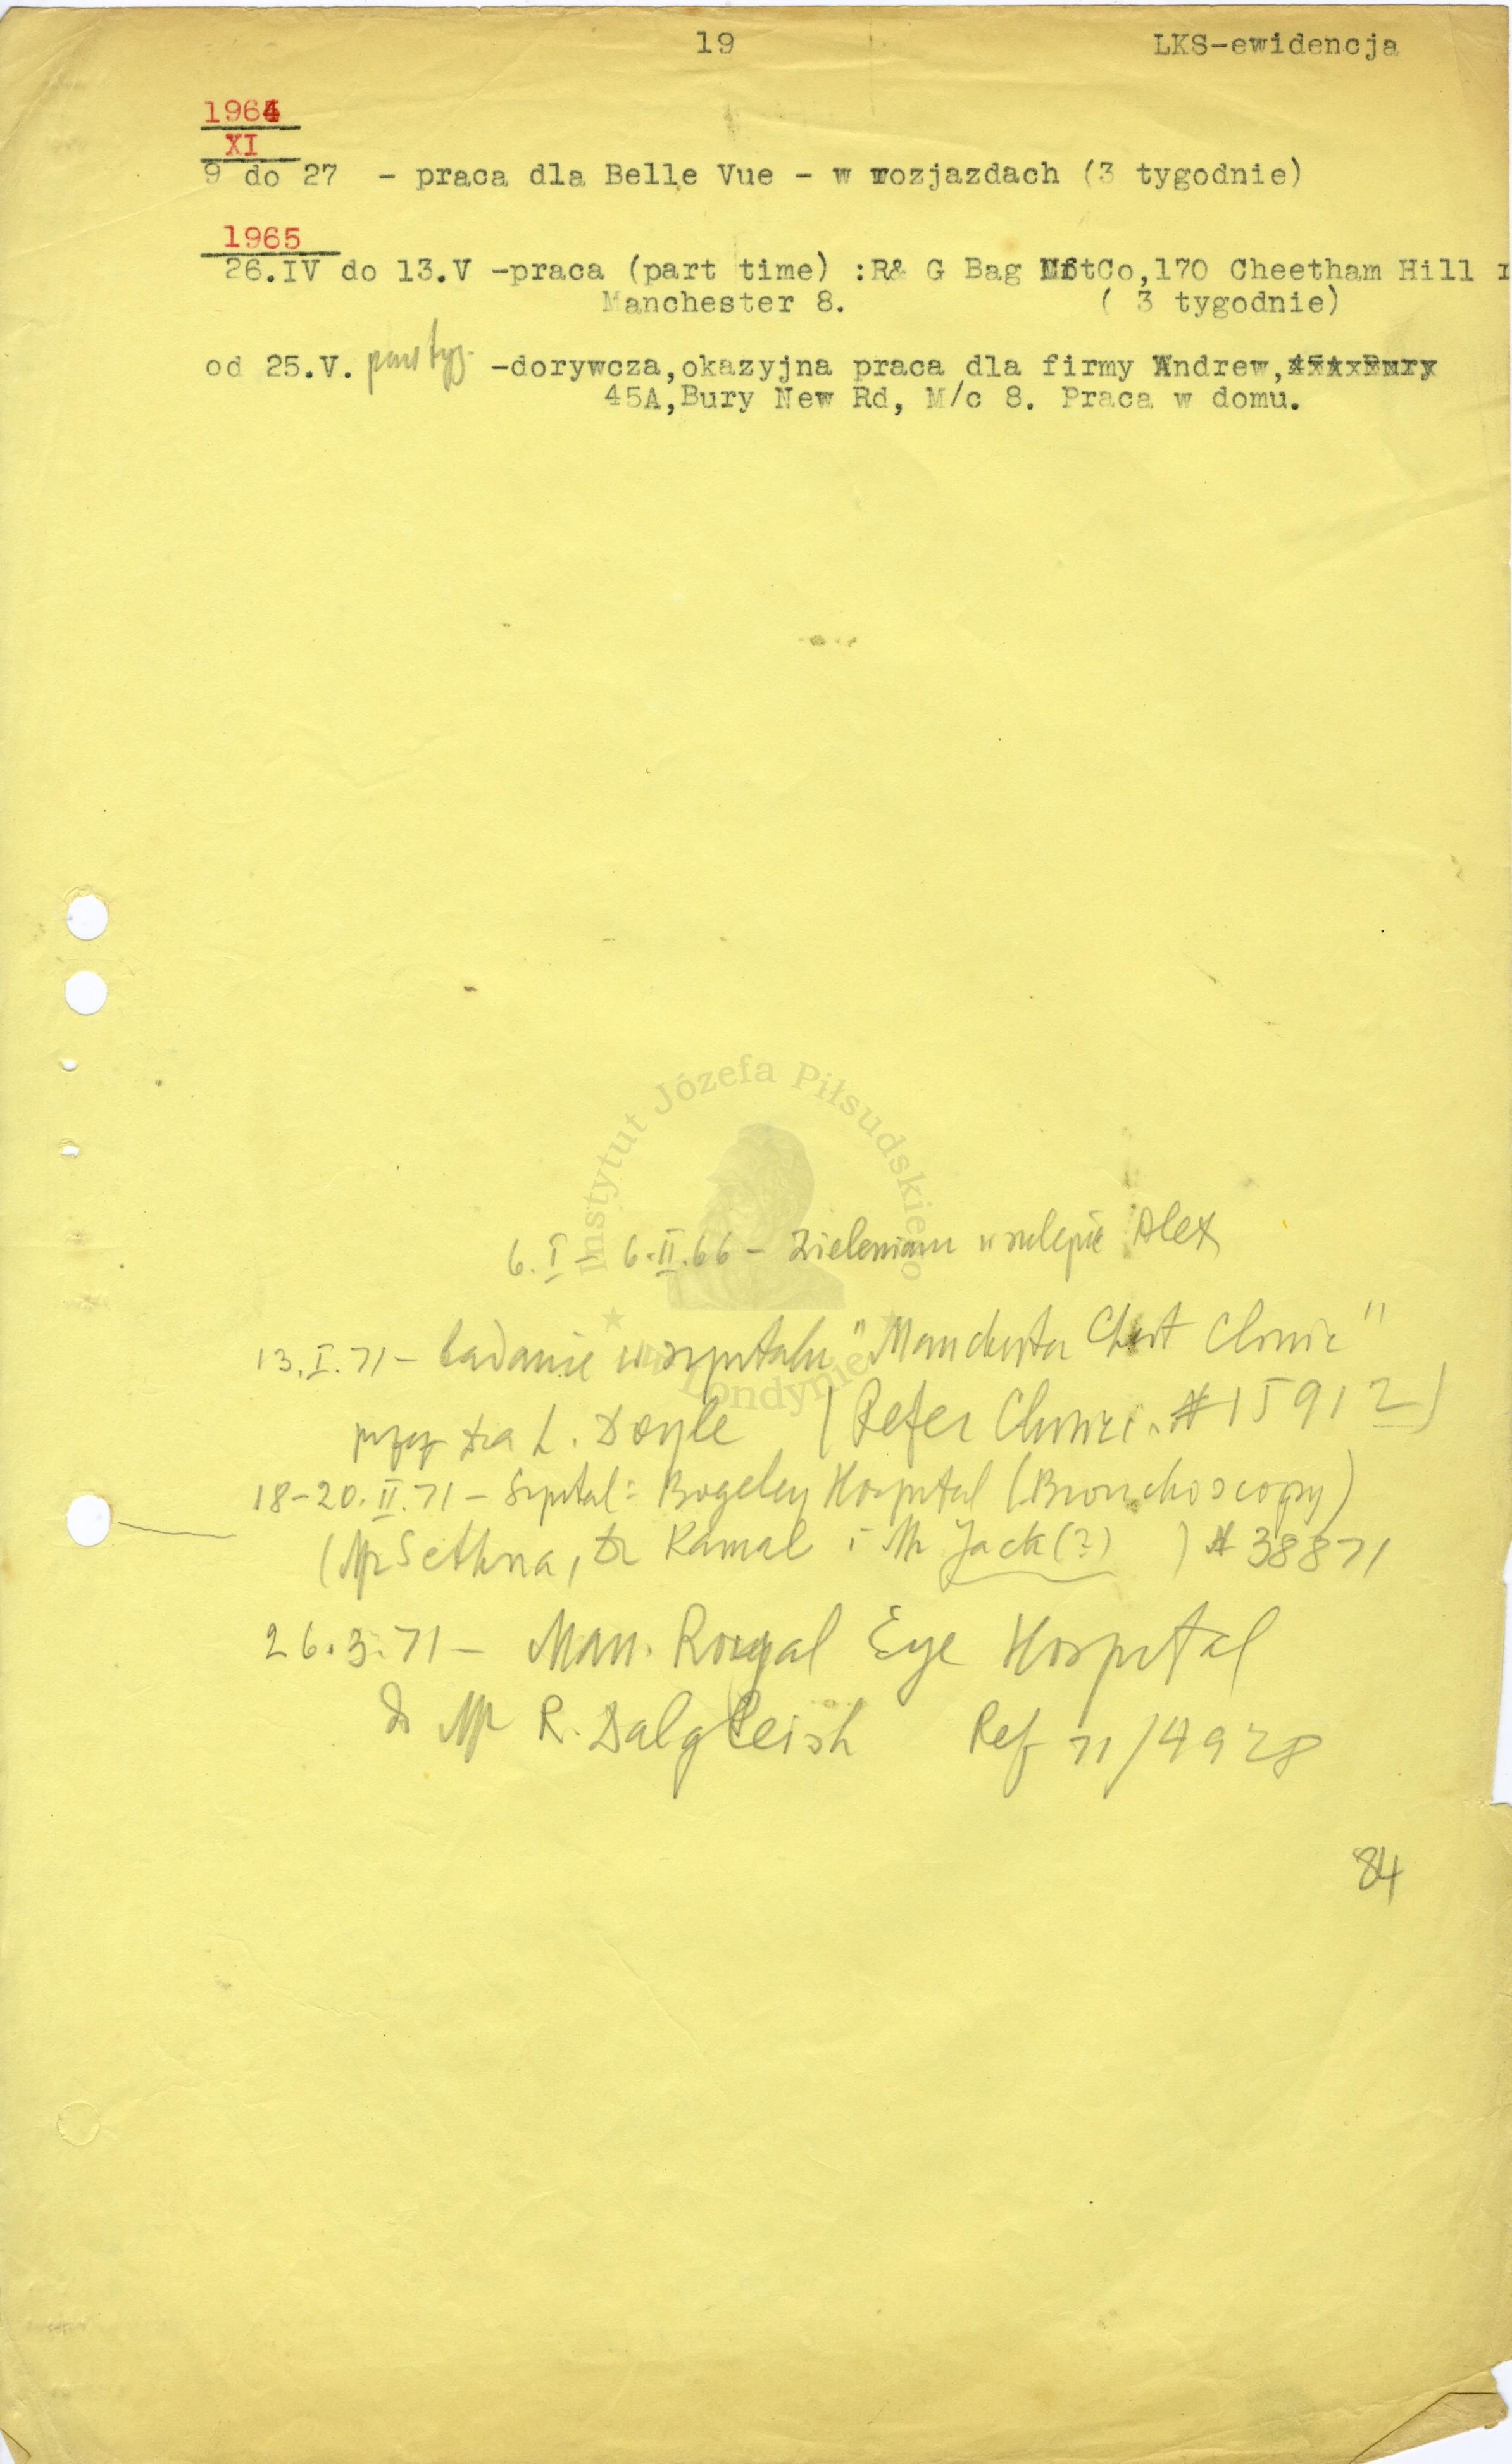 19 LKS-ewidencja
1964
XI
9 do 27 - praca dla Belle Vue - w rozjazdach (3 tygodnie)
1965
26.IV do 13.V -praca (part time) :R& G Bag Co,170 Cheetham Hill
Manchester 8. ( 3 tygodnie)
od 25.V. -dorywcza,okazyjna praca dla firmy Andrew,
45A,Bury New Rd, M/c 8. Praca w domu.
Instytut Józefa Piłsudskiego
w Londynie
6.I - 6.II.66 - w sklepie Alex
13.I.71 - badanie w szpitalu "Manchester Chest Clinic"
przez Dra L. Doyle (Refer Clinic. #15912)
18-20.II.71 - Szpital: Hospital (Bronchoscopy)
(Mr Sethna, Dr Kamal i Mr Jack(?) ) # 38871
26.3.71 - Man. Royal Eye Hospital
Mr R. Dalgleish Ref 71/4928
84